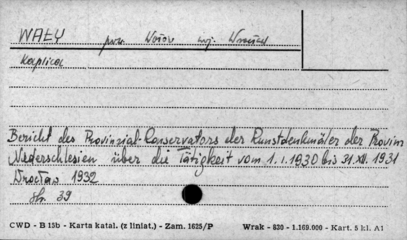 WAŁY pow. Wołów woj. Wrocław
kaplica
Bericht des Provinzial-Conservators der Kunstdenkmäler der Provinz
Niederschlesien über die Tätigkeit vom 1.I.1930 bis 31.XII.1931
Wrocław 1932
str. 39
CWD - B 15b - Karta katal. (z liniat.) - Zam. 1625/P Wrak - 830 - 1.169.000 - Kart. 5 kl. A1